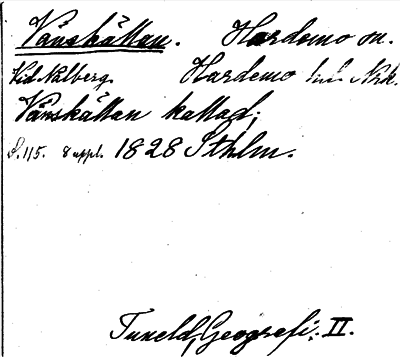 Vänskällan. Hardemo sn.
Vid Valberg. Hardemo hd. Nrk.
Vänskällan kallad;
S. 115. 8 uppl. 1828 Sthlm.
Tuneld, Geografi. II.